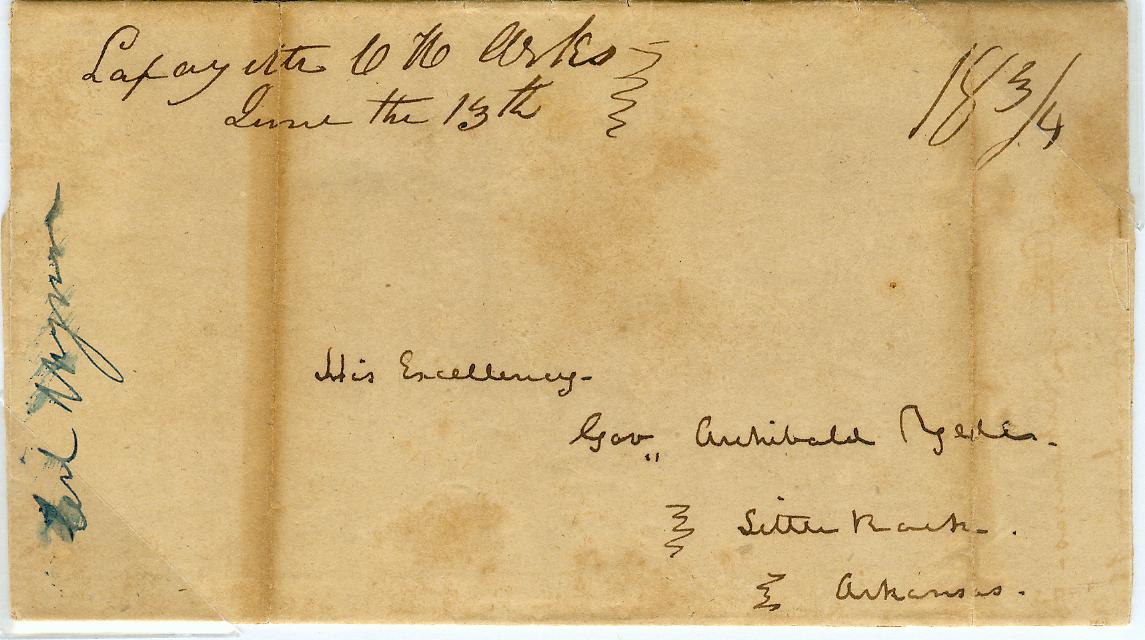 Lafayette C H Arks
June the 13th
18 3/4
His Excellency-
Gov„ Archibald Yell.
Little Rock.
Arkansas.